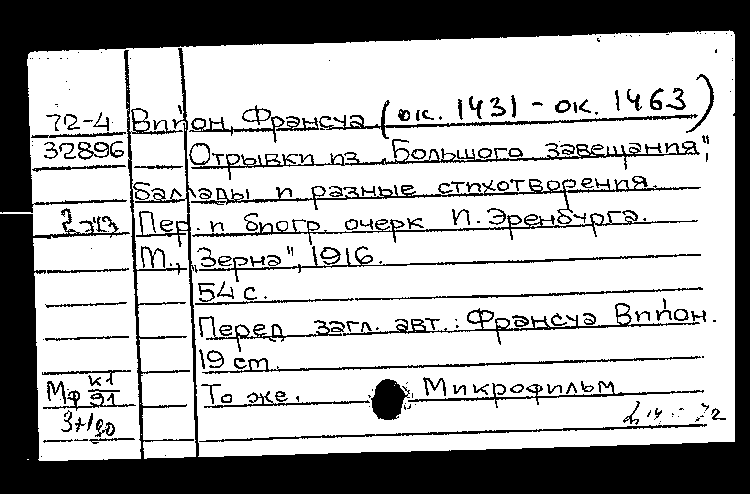 72-4 Виллон, Франсуа (ок. 1431 - ок. 1463)
32896 Отрывки из „Большого завещания",
баллады и разные стихотворения.
2 экз Пер. и биогр. очерк И. Эренбурга.
М., „Зерна", 1916.
54 с.
Перед загл. авт.: Франсуа Виллон.
19 см.
Мф К1/91 То же. Микрофильм